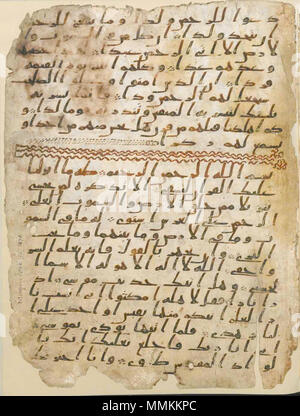 دعوا للرحمن ولدا وما ينبغي للر
حمن ان يتخذ ولدا ان كل من في السموت وا
لارض الا اتي الرحمن عبدا لقد احصيهم
وعدهم عدا وكلهم اتيه يوم القيمة
فردا ان الذين امنوا وعملوا الصلحت
سيجعل لهم الرحمن ودا فانما يسرنه
بلسنك لتبشر به المتقين وتنذر به قوما لدا و
كم اهلكنا قبلهم من قرن هل تحس منهم من احد او
تسمع لهم ركزا
بسم الله الرحمن الرحيم طه ما انزلنا
عليك القرن لتشقى الا تذكرة لمن يخشى
تنزيلا ممن خلق الارض والسموت العلى
الرحمن على العرش استوى له ما في السمو
ت وما في الارض وما بينهما وما تحت
الثرى وان تجهر بالقول فانه يعلم السر
واخفى الله لا اله الا هو له الاسما
الحسنى وهل اتيك حديث موسى اذ
را نارا فقال لاهله امكثوا اني انست نا
را لعلي اتيكم منها بقبس او اجد على ا
لنار هدى فلما اتيها نودي يموسى
اني انا ربك فاخلع نعليك انك با
لواد المقدس طوى وانا اخترتك
alamy
MMKKPC